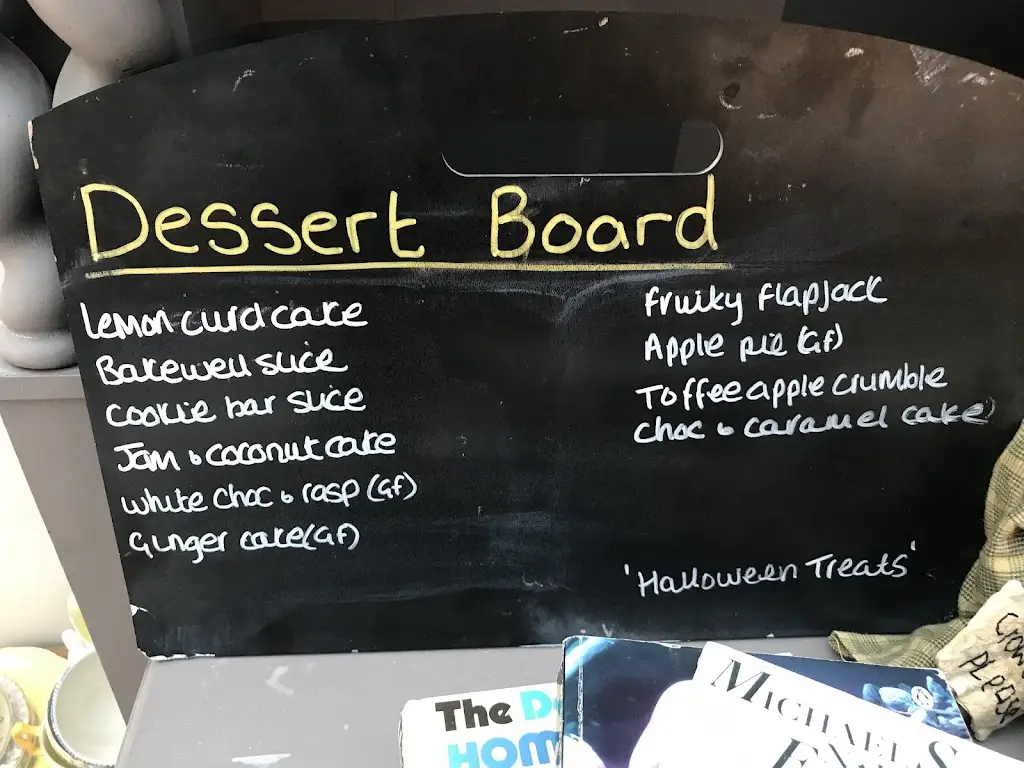 Dessert Board
Lemon curd cake
Bakewell slice
cookie bar slice
Jam & coconut cake
white choc & rasp (GF)
Ginger cake (GF)
fruity flapjack
Apple pie (GF)
Toffee apple crumble
choc & caramel cake
'Halloween Treats'
The D
HOM
MICHAEL S